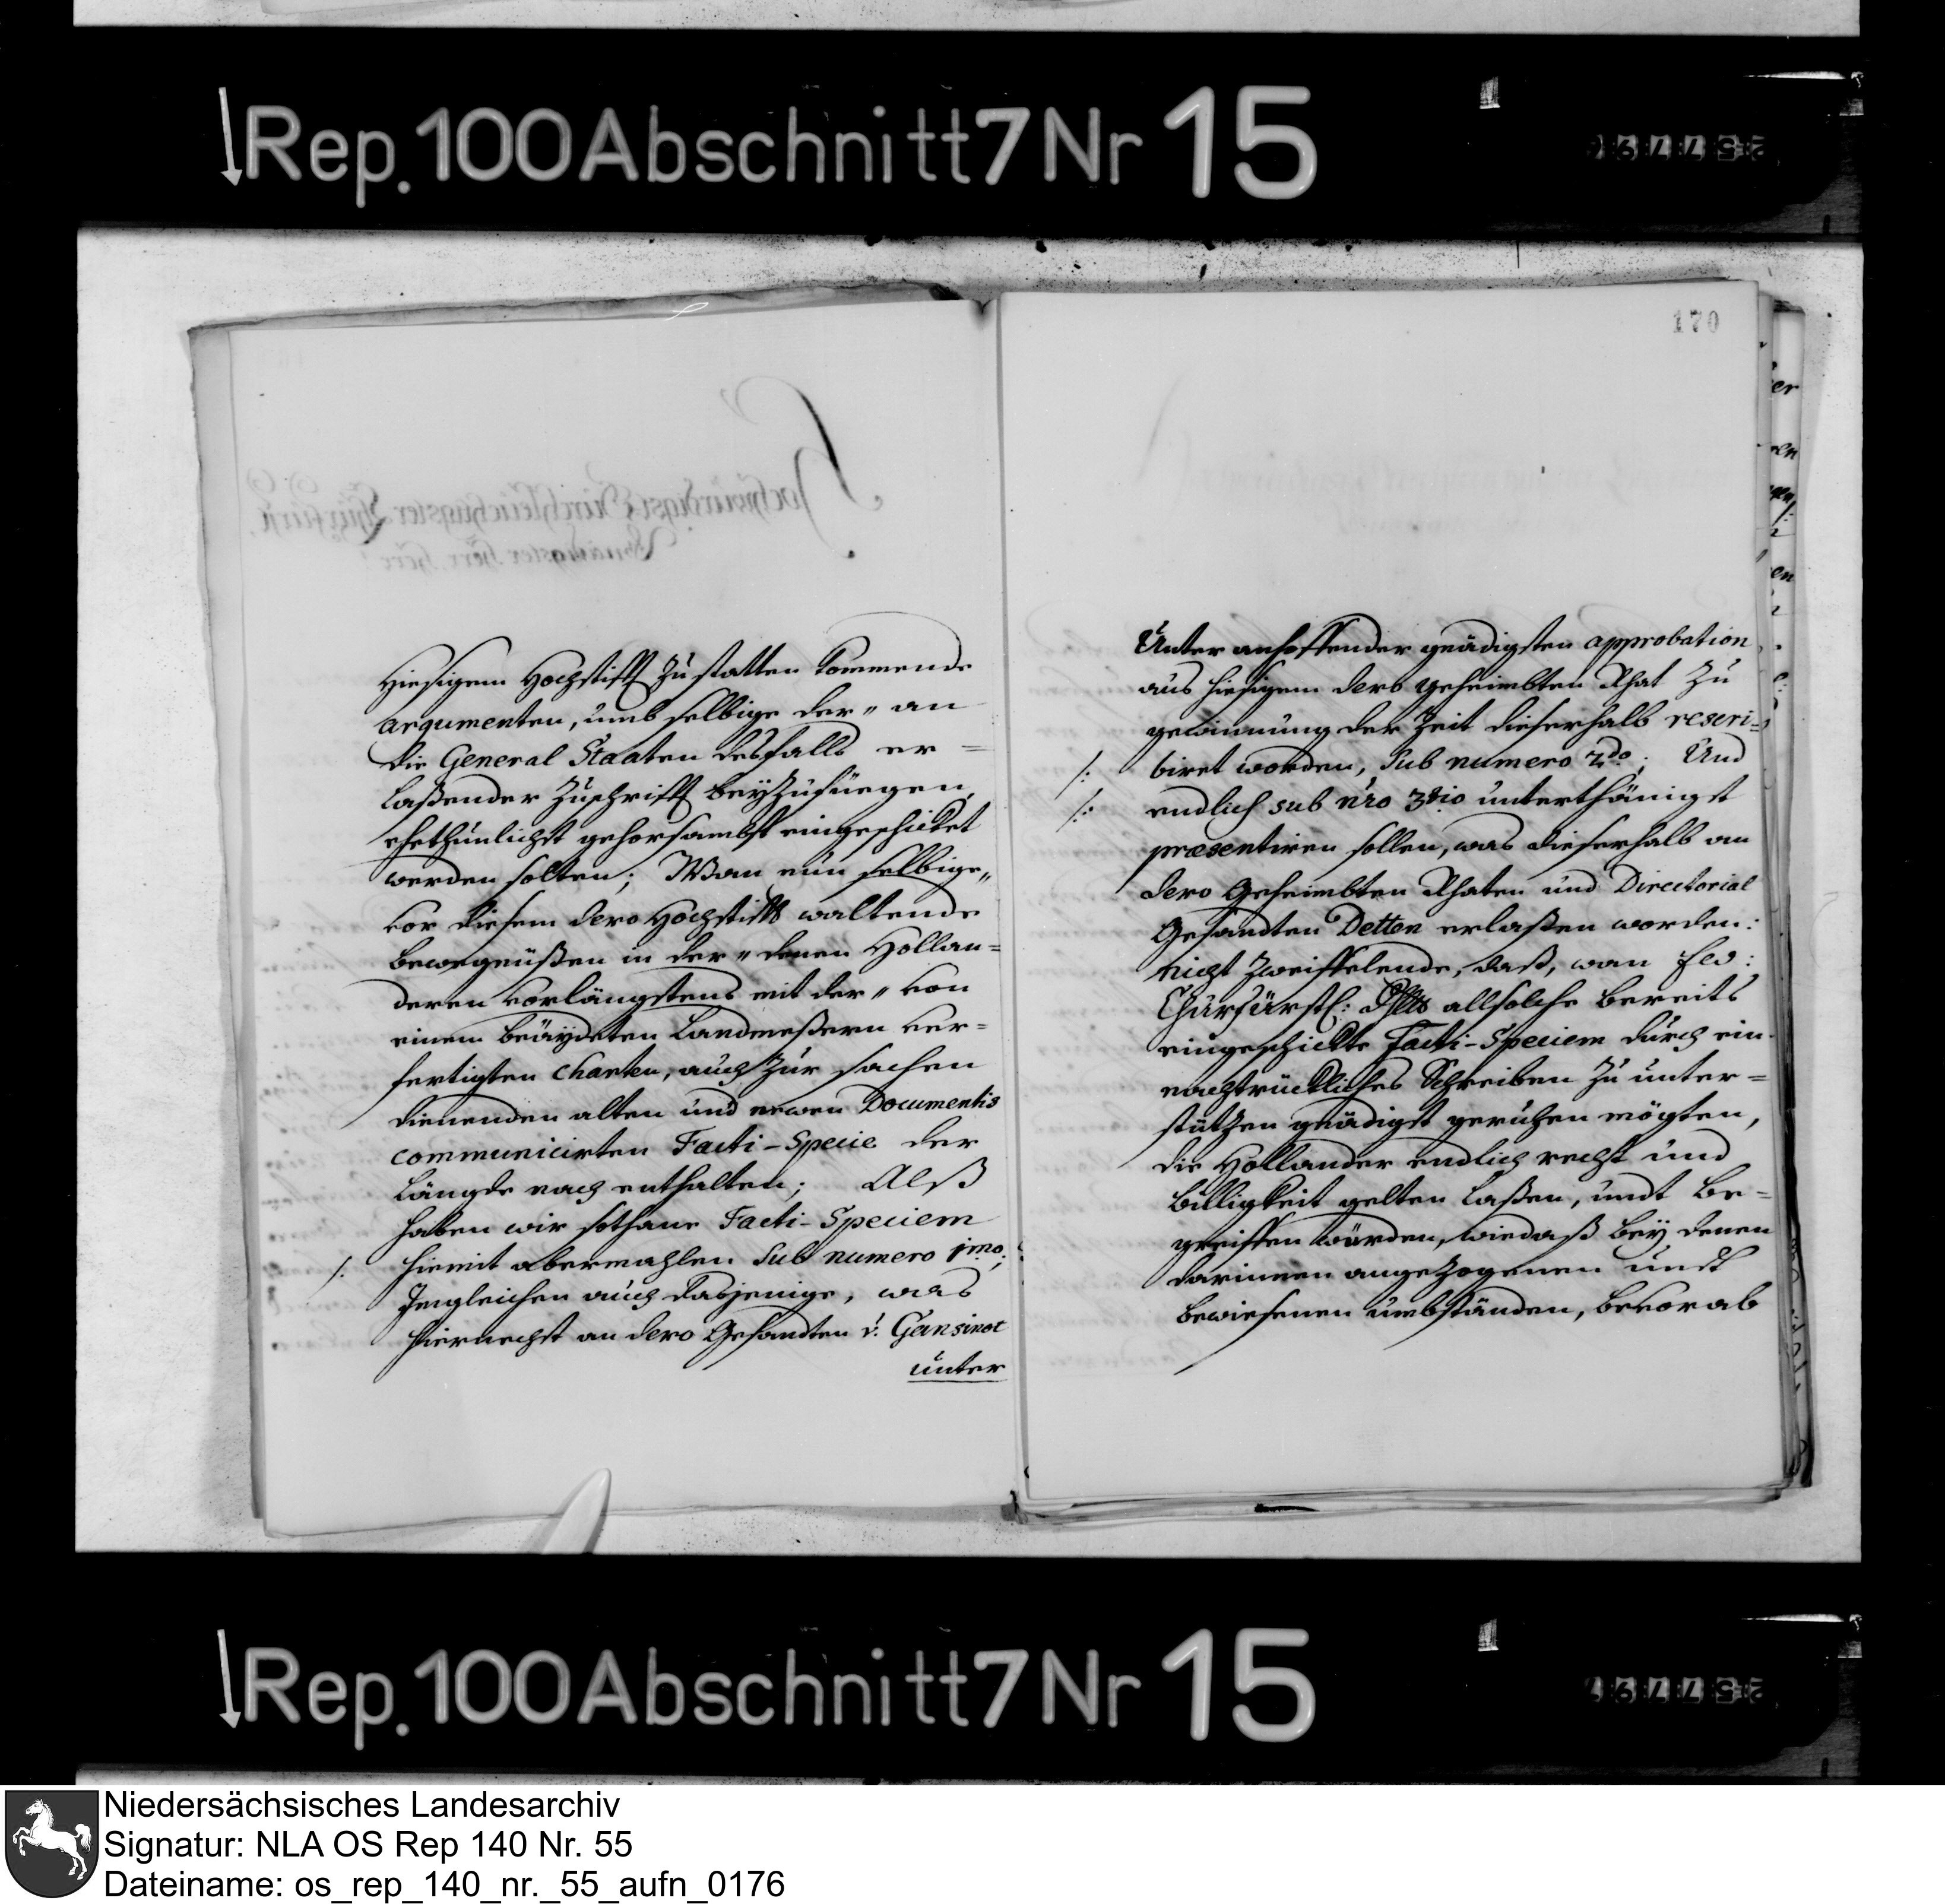 Rep.100 Abschnitt 7 Nr 15
170
Hiesigem Hochstifft zu statten kommende
argumenten, umb selbige der " an
die General Staaten desfalls er =
laßender Zuschrifft beyzufuegen,
ehethunlichst gehorsambst eingeschicket
werden solten; Wan nun selbige "
vor diesem dero Hochstiffts waltende
bewegnüßen in der " denen Hollan=
deren vorlängstens mit der " von
einem beäydeten Landmeßern ver=
fertigten Charten, auch zur sachen
dienenden alten und newen Documentis
communicirten Facti-Specie der
Längde nach enthalten; Alß
haben wir sothane Facti-Speciem
/. hiemit abermahlen sub numero 1mo;
Ingleichen auch dasjenige, was
hiernechst an dero Gesandten v. Gansinot
unter
Unter anhoffender gnädigsten approbation
aus hiesigem dero geheimbten Rhat zu
gewinnung der Zeit dieserhalb rescri=
/: biret worden, sub numero 2do; Und
/: endlich sub nro 3tio unterthänigst
præsentiren sollen, was dieserhalb an
dero Geheimbten Rhaten und Directorial
Gesandten Detten erlaßen worden:
nicht zweiffelende, daß, wan Ew:
Churfürstl: Dhltt allsolche bereits
eingeschickte Facti-Speciem durch ein
nachtrückliches Schreiben zu unter=
stützen gnädigst geruhen mögten,
die Hollander endlich recht und
billigkeit gelten laßen, undt be=
greiffen würden, wiedaß bey denen
darinnen angezogenen undt
bewiesenen umbständen, bevorab
Rep.100 Abschnitt 7 Nr 15
Niedersächsisches Landesarchiv
Signatur: NLA OS Rep 140 Nr. 55
Dateiname: os_rep_140_nr._55_aufn_0176